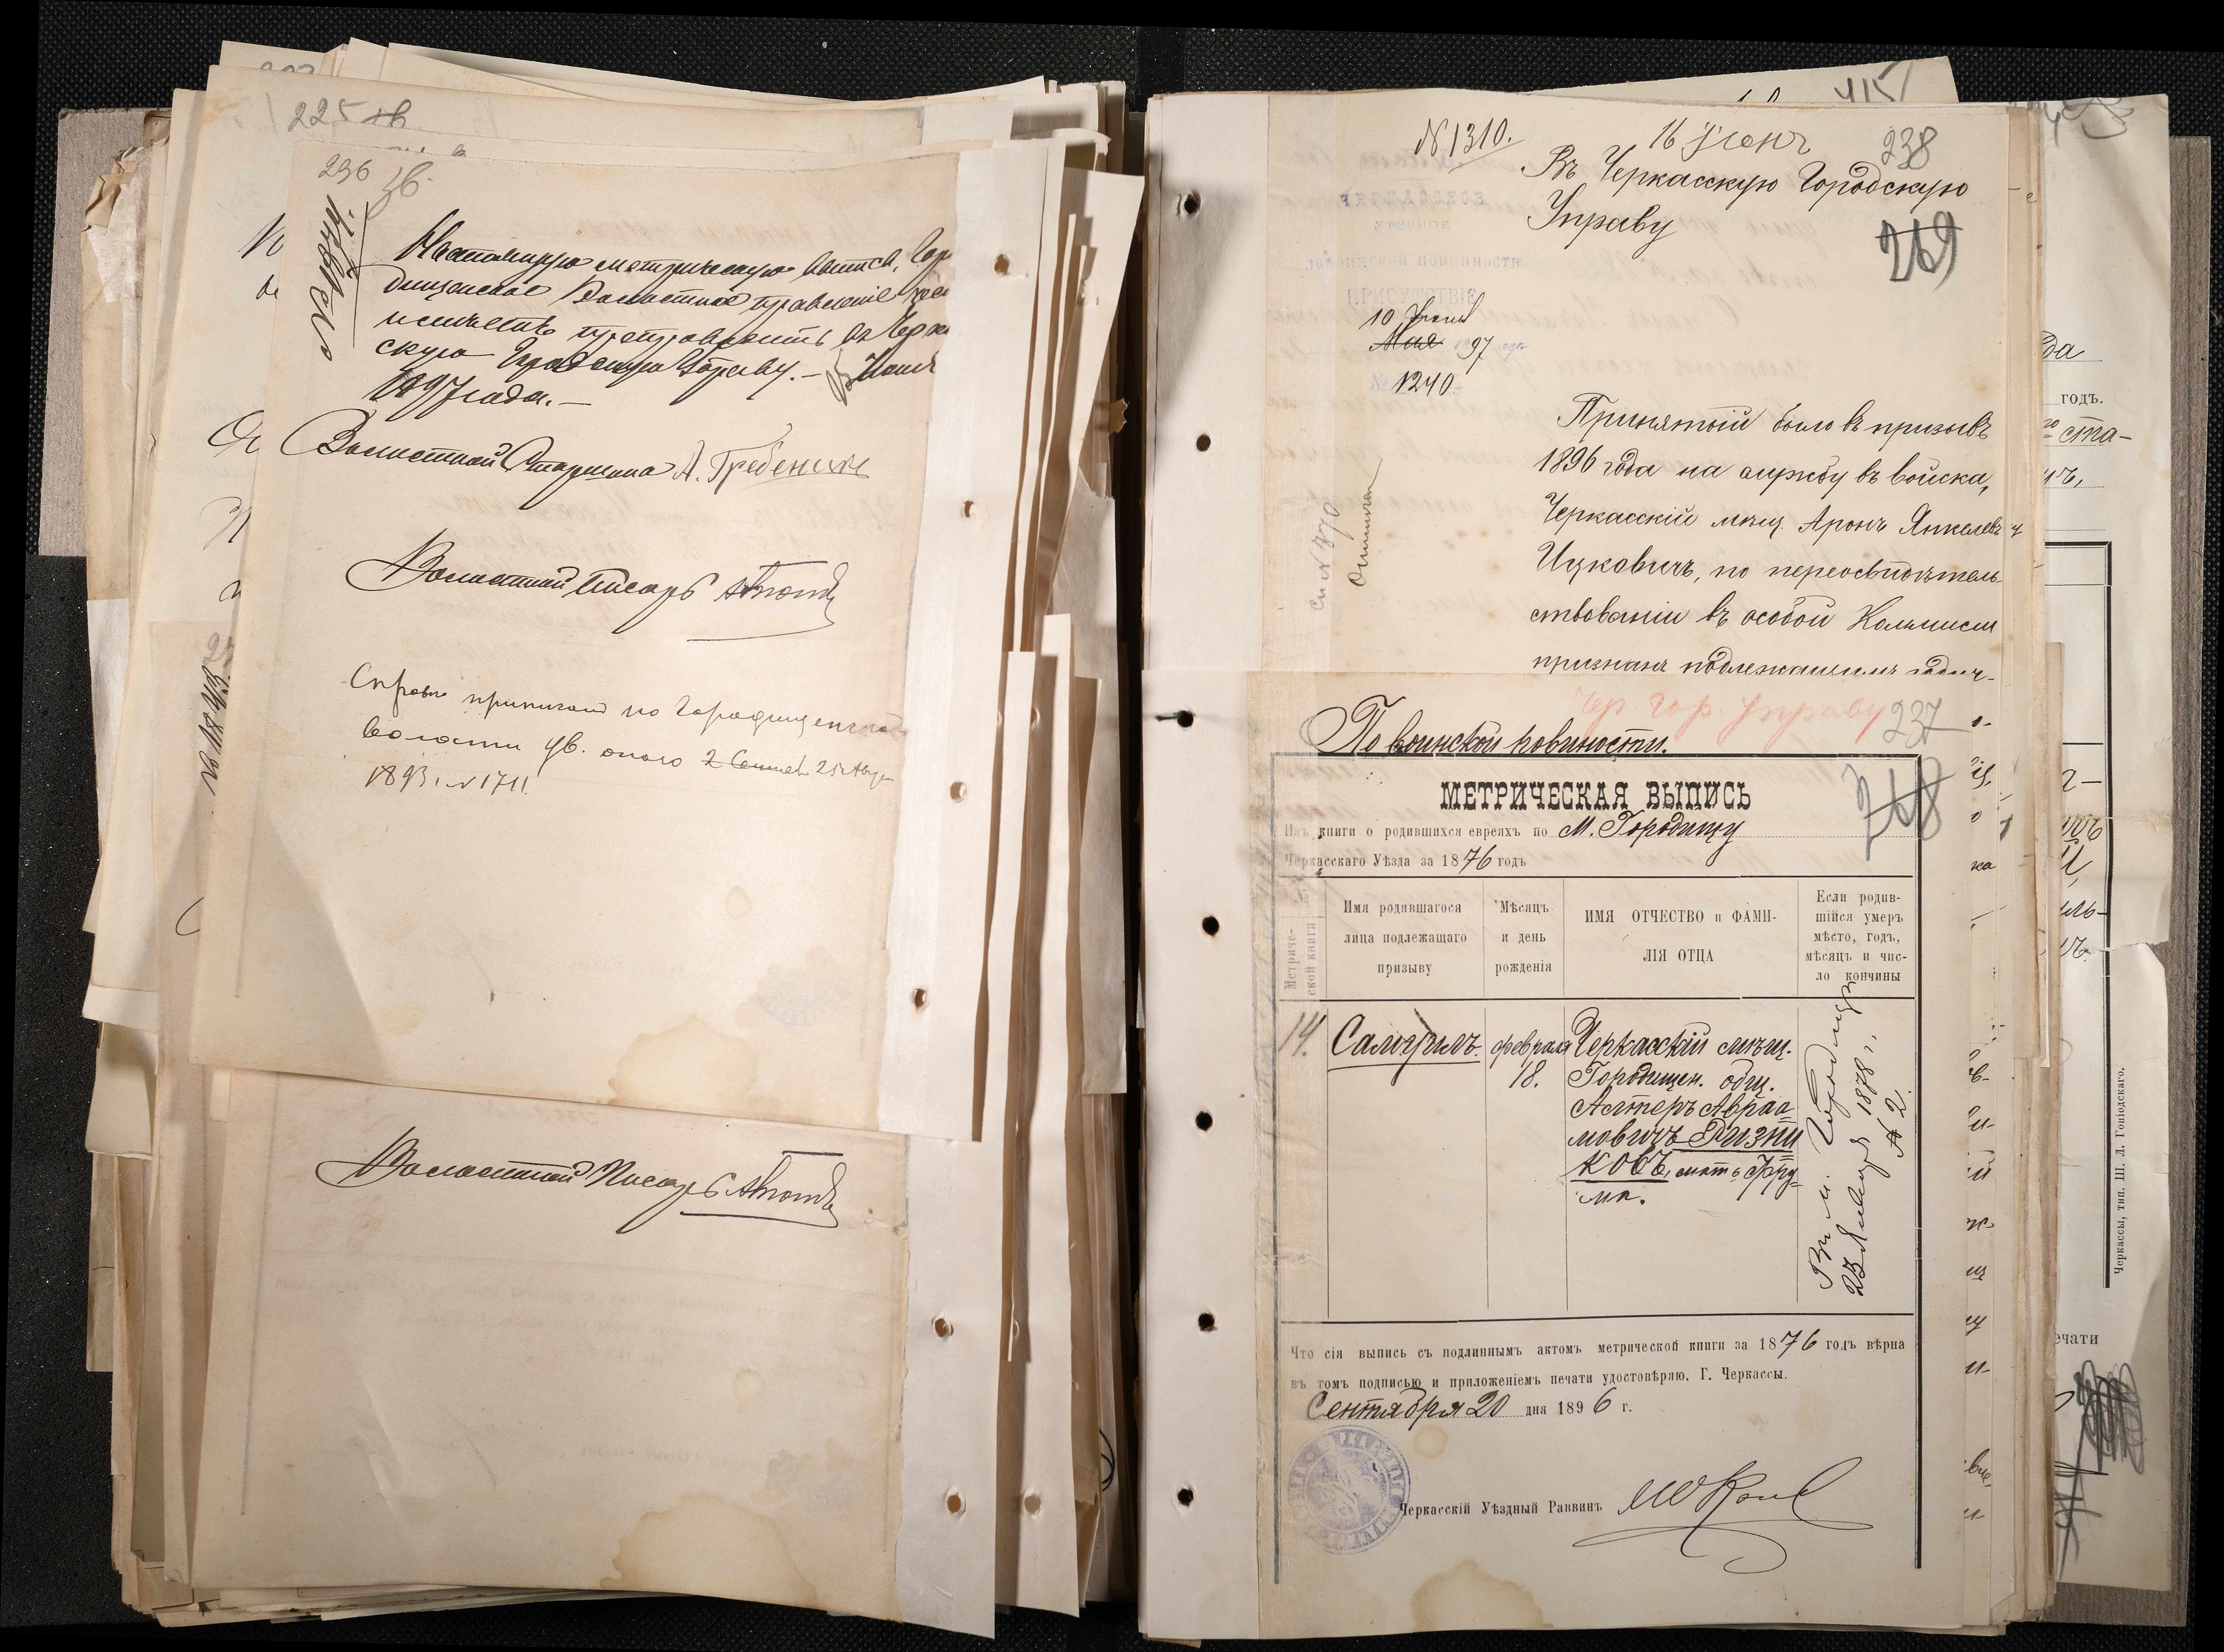 225 зв
236 зв.
Настоящую метрическую выпись, Горо
дищенское Волостное правленіе
честь препроводить въ Черкас
скую Городскую Управу. — Іюня
1897 года. —
Волостной Старшина А. Гребеник
Волостной Писарь
Справк приписан по Городищенской
волости ув. около 25 Авгу
1893 г. № 1711.
Волостной Писарь
415
№ 1310.
16 Іюня
238
Въ Черкасскую Городскую
Управу
269
ЧЕРКАССКОЕ
УѢЗДНОЕ
ПО ВОИНСКОЙ ПОВИННОСТИ
ПРИСУТСТВІЕ
10 Іюня
Мая 97
№ 1240
Принятый было въ призывъ
1896 года на службу въ войска,
Черкасскій мѣщ. Аронъ Янкелевъ
Ицковичъ, по переосвидѣтель-
ствованіи въ особой Коммисіи
признанъ подлежащимъ
сп № 370
Чер Гор. Управу
237
По воинской повинности.
МЕТРИЧЕСКАЯ ВЫПИСЬ
268
Изъ книги о родившихся евреяхъ по М. Городищу
Черкасскаго Уѣзда за 1876 годъ
№ Метриче-
ской книги
Имя родившагося
лица подлежащаго
призыву
Мѣсяцъ
и день
рожденія
ИМЯ ОТЧЕСТВО и ФАМИ-
ЛІЯ ОТЦА
Если родив-
шійся умеръ
мѣсто, годъ,
мѣсяцъ и чис-
ло кончины
14.
Самуилъ.
февраля
18.
Черкасскій мѣщ.
Городищен. общ.
Алтеръ Авраа
мовичъ Ризни
ковъ, мать Фру-
ма.
Въ м. Городищѣ
23 Января 1878 г.
№ 2.
Что сія выпись съ подлиннымъ актомъ метрической книги за 1876 годъ вѣрна
въ томъ подписью и приложеніемъ печати удостовѣряю. Г. Черкассы.
Сентября 20 дня 1896 г.
Черкасскій Уѣздный Раввинъ
годъ.
ста-
ечати
Черкассы, тип. Ш. Л. Гоніодскаго.